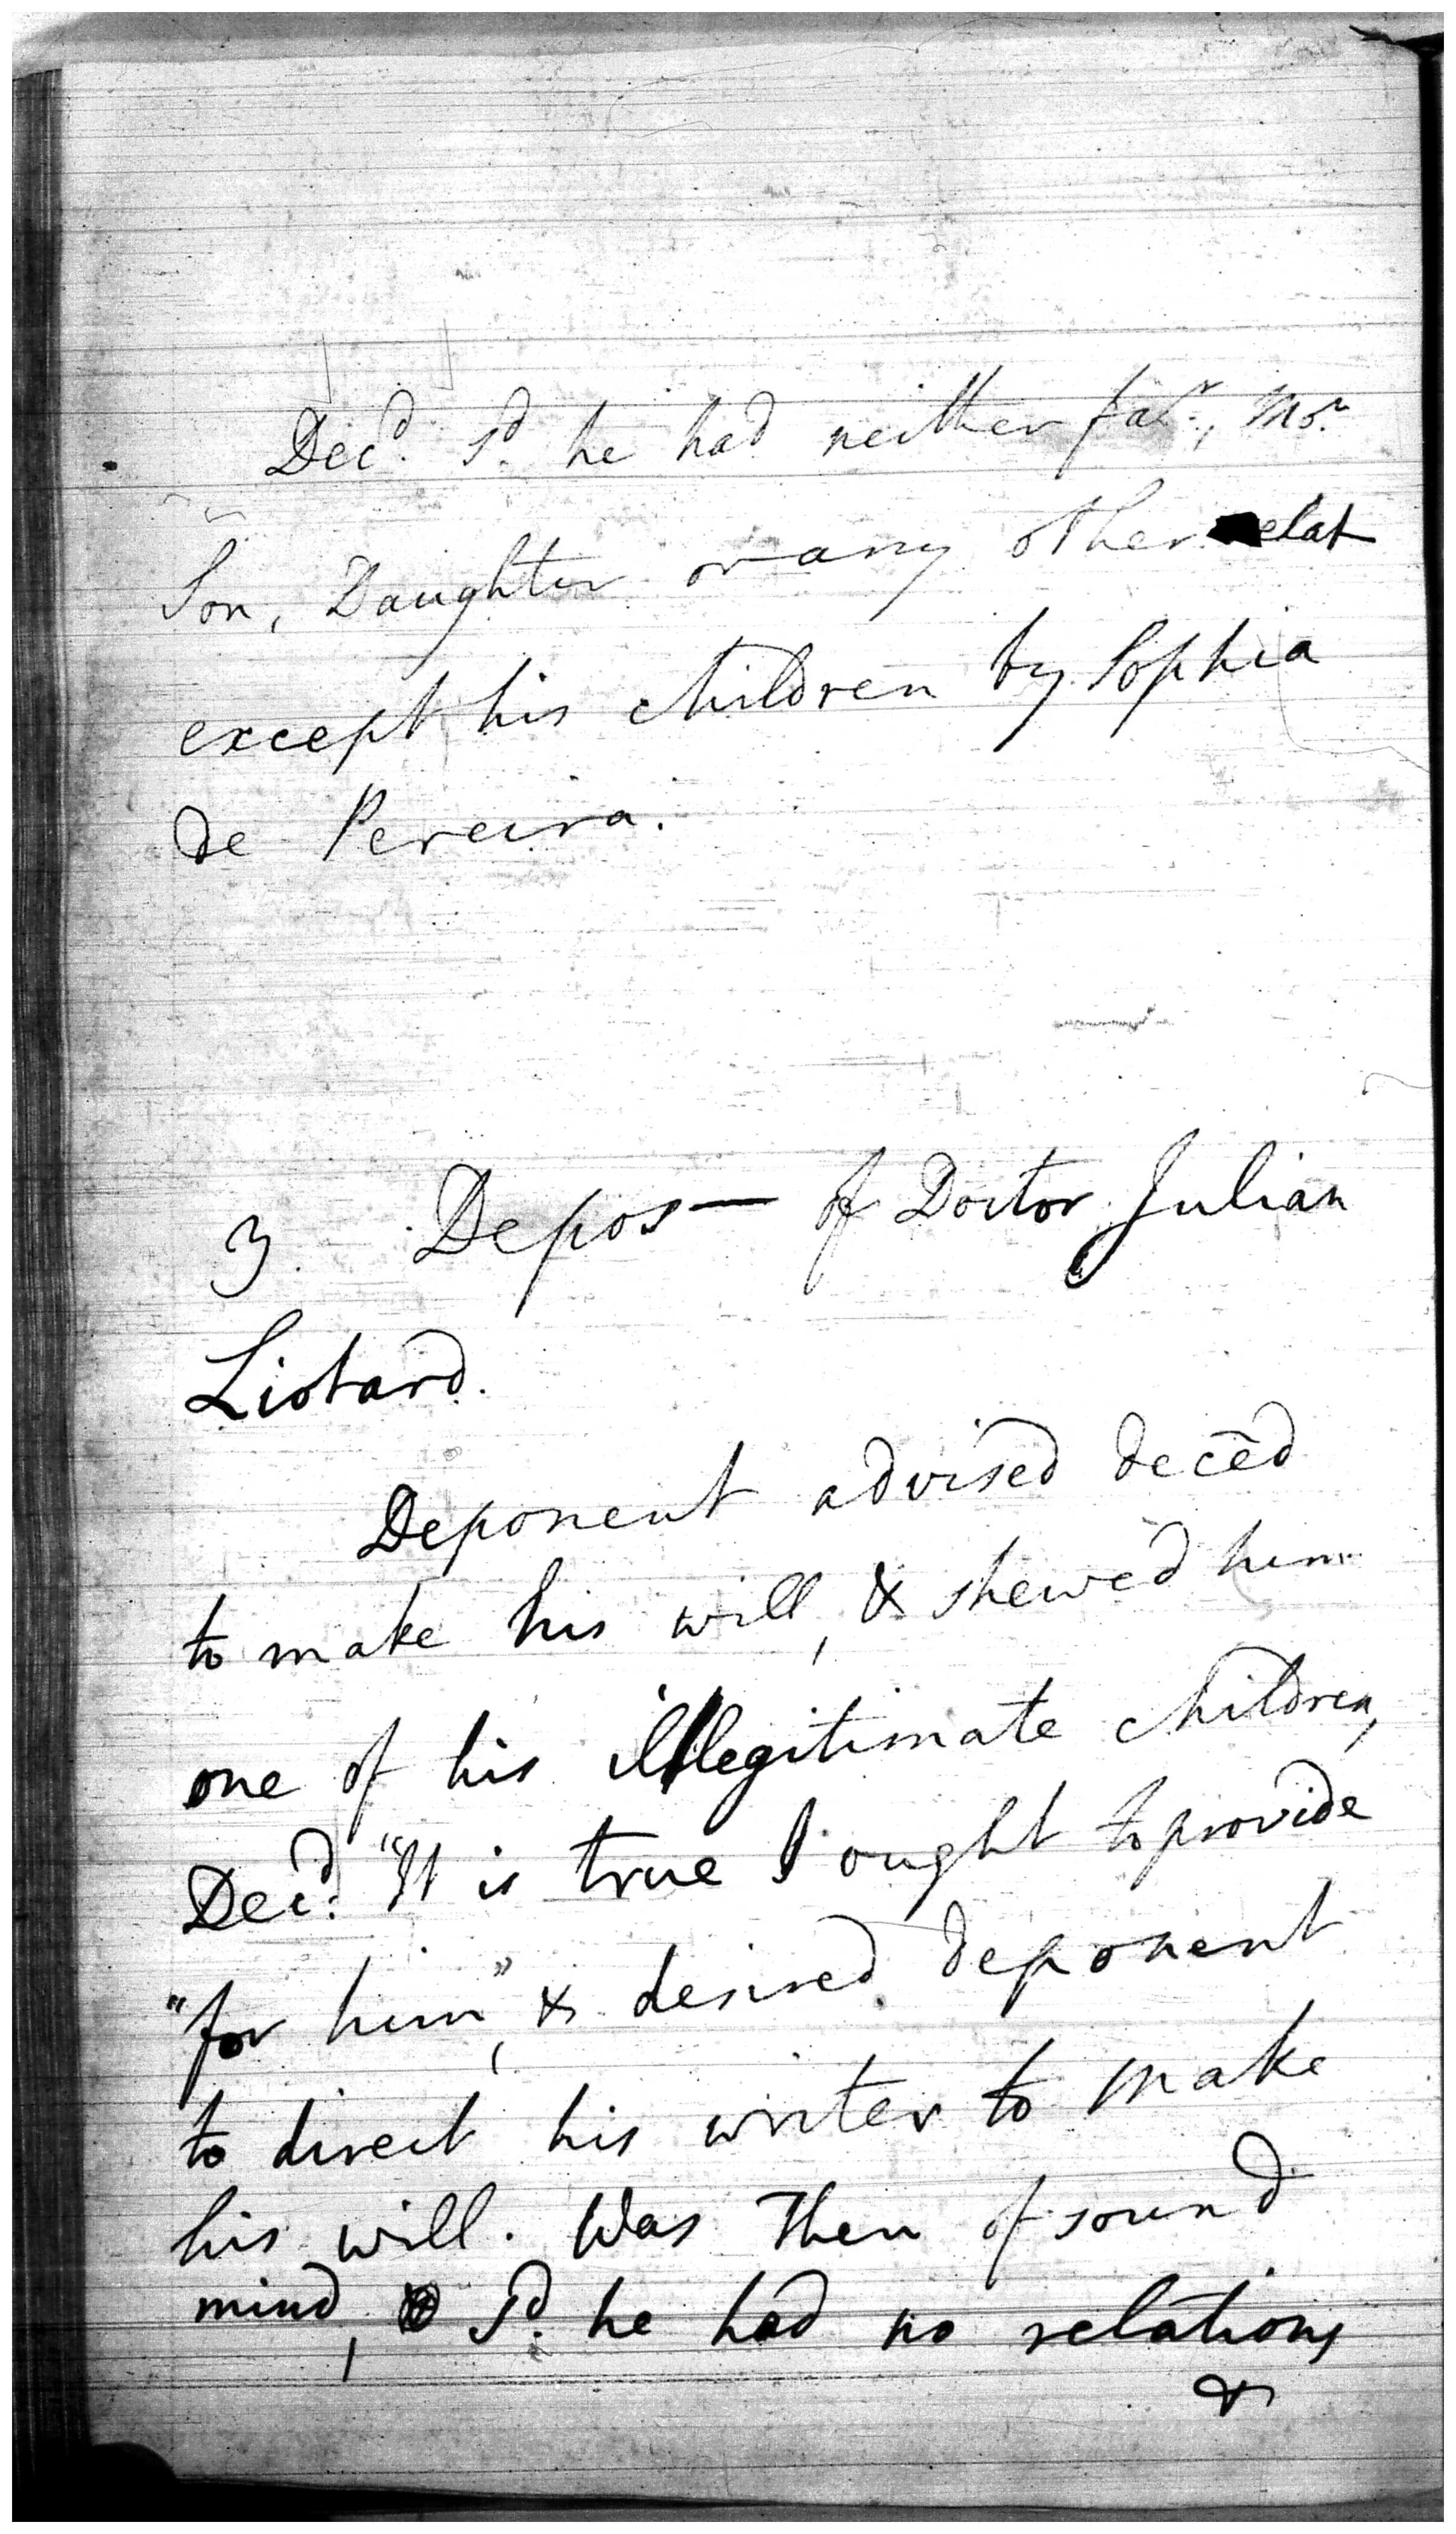 Decd. sd. he had neither far., Mor.
Son, Daughter or any other relat
except his children by Sophia
de Pereira.
3. Depos— of Doctor Julian
Liotard.
Deponent advised decēd
to make his will, & shewed him
one of his illegitimate children,
Decd. "It is true I ought to provide
"for him", & desired deponent
to direct his writer to make
his will. Was then of sound
mind, & sd. he had no relations
&